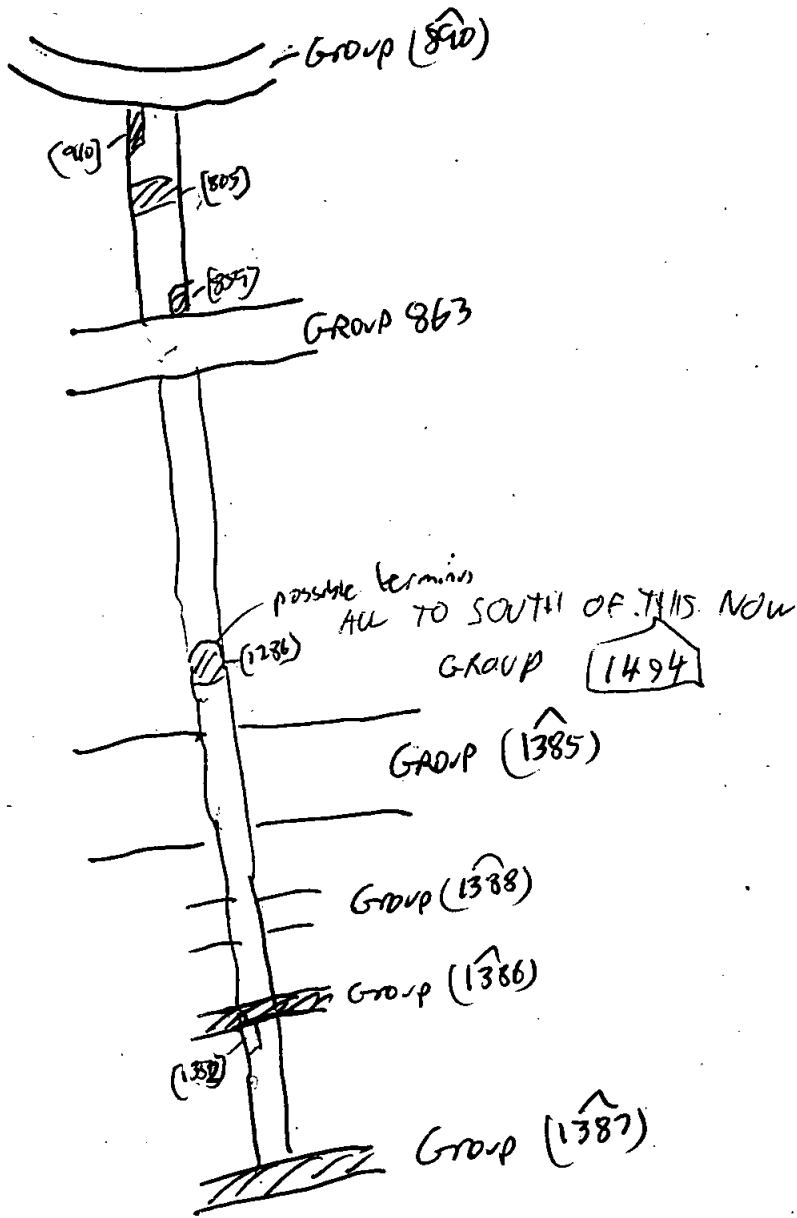 Group (890)
[910]
[805]
GROUP 863
possible terminus
ALL TO SOUTH OF THIS NOW
(1286)
GROUP 1494
GROUP (1385)
Group (1388)
Group (1386)
Group (1387)